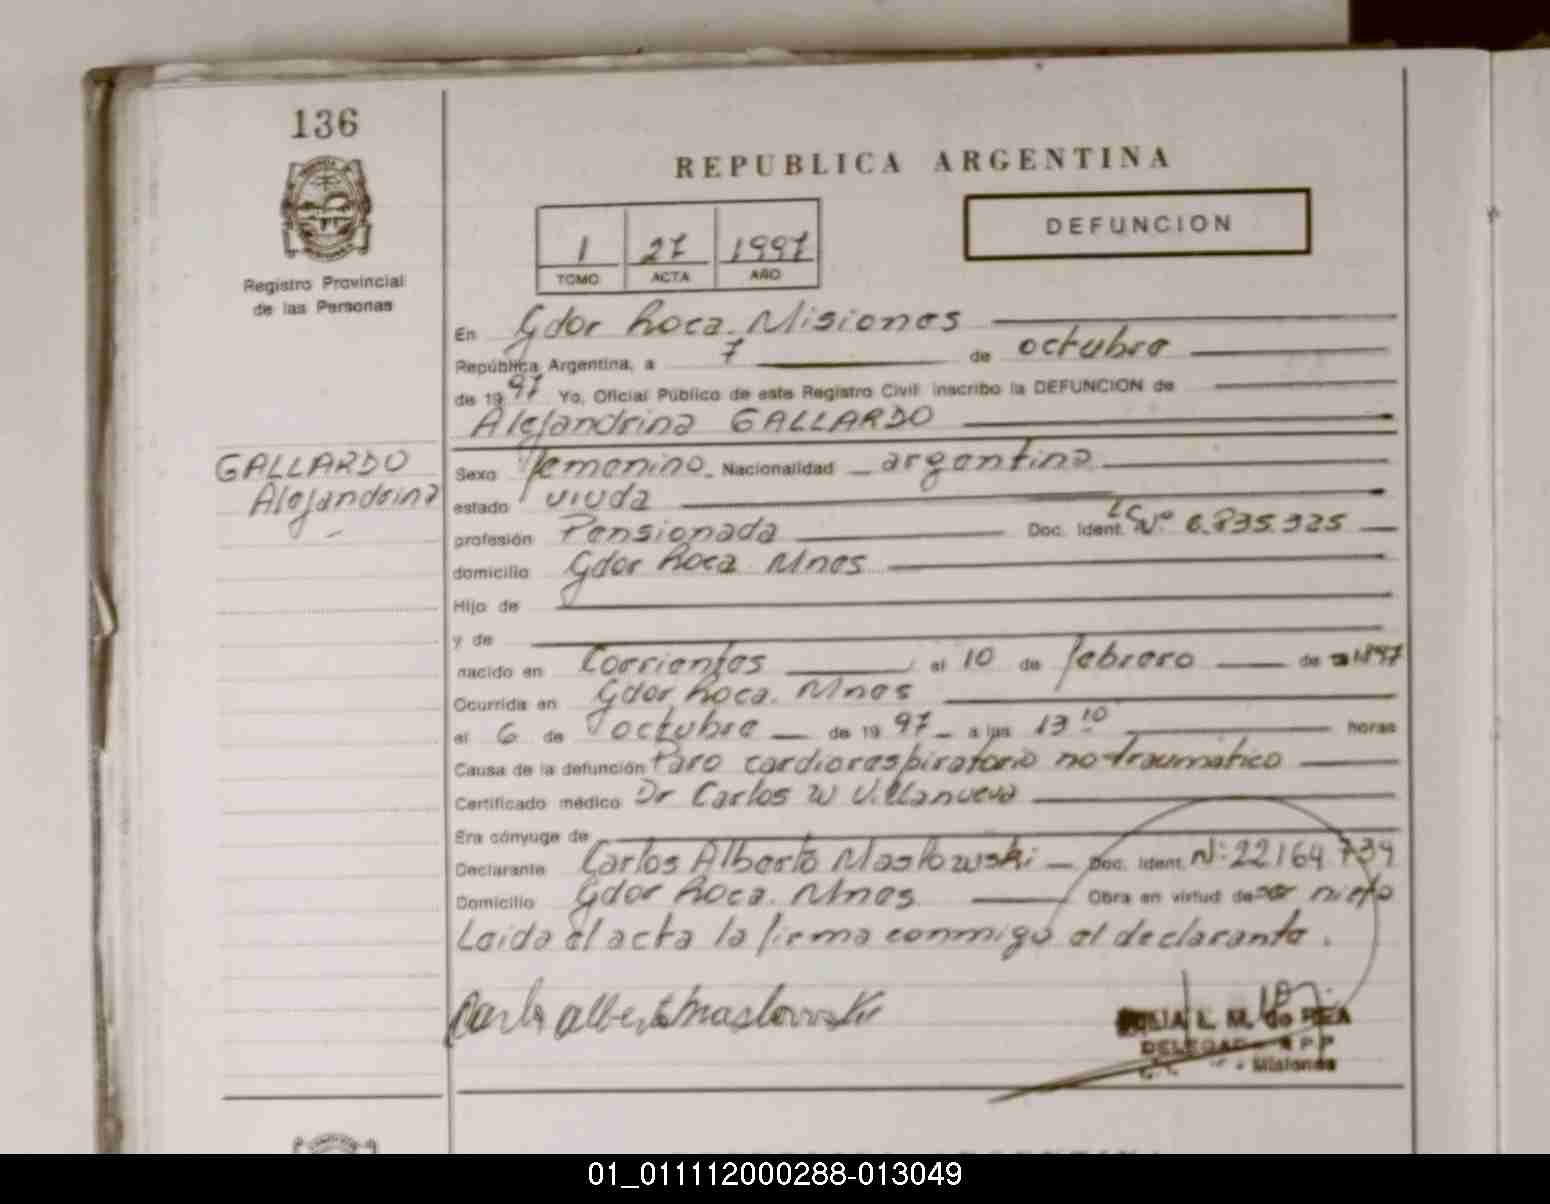 136
REPUBLICA ARGENTINA
DEFUNCION
1 27 1997
TOMO ACTA AÑO
Registro Provincial
de las Personas
En Gdor Roca. Misiones
República Argentina, a 7 de octubre
de 19 97 Yo, Oficial Público de este Registro Civil inscribo la DEFUNCION de
Alejandrina GALLARDO
GALLARDO
Alejandrina
Sexo femenino. Nacionalidad argentina
estado viuda
profesión Pensionada Doc. Ident. LC Nº 6.835.325
domicilio Gdor Roca Mnes
Hijo de
y de
nacido en Corrientes el 10 de febrero de 1897
Ocurrida en Gdor Roca. Mnes
el 6 de octubre de 19 97 a las 13 10 horas
Causa de la defunción Paro cardiorespiratorio no traumático
Certificado médico Dr Carlos W Villanueva
Era cónyuge de
Declarante Carlos Alberto Maslowski Doc. Ident. Nº 22164734
Domicilio Gdor Roca. Mnes Obra en virtud de ser nieto
Leida el acta la firma conmigo el declarante.
Carlos Alberto Maslowski
L. M. de REA
Misiones
01_011112000288-013049